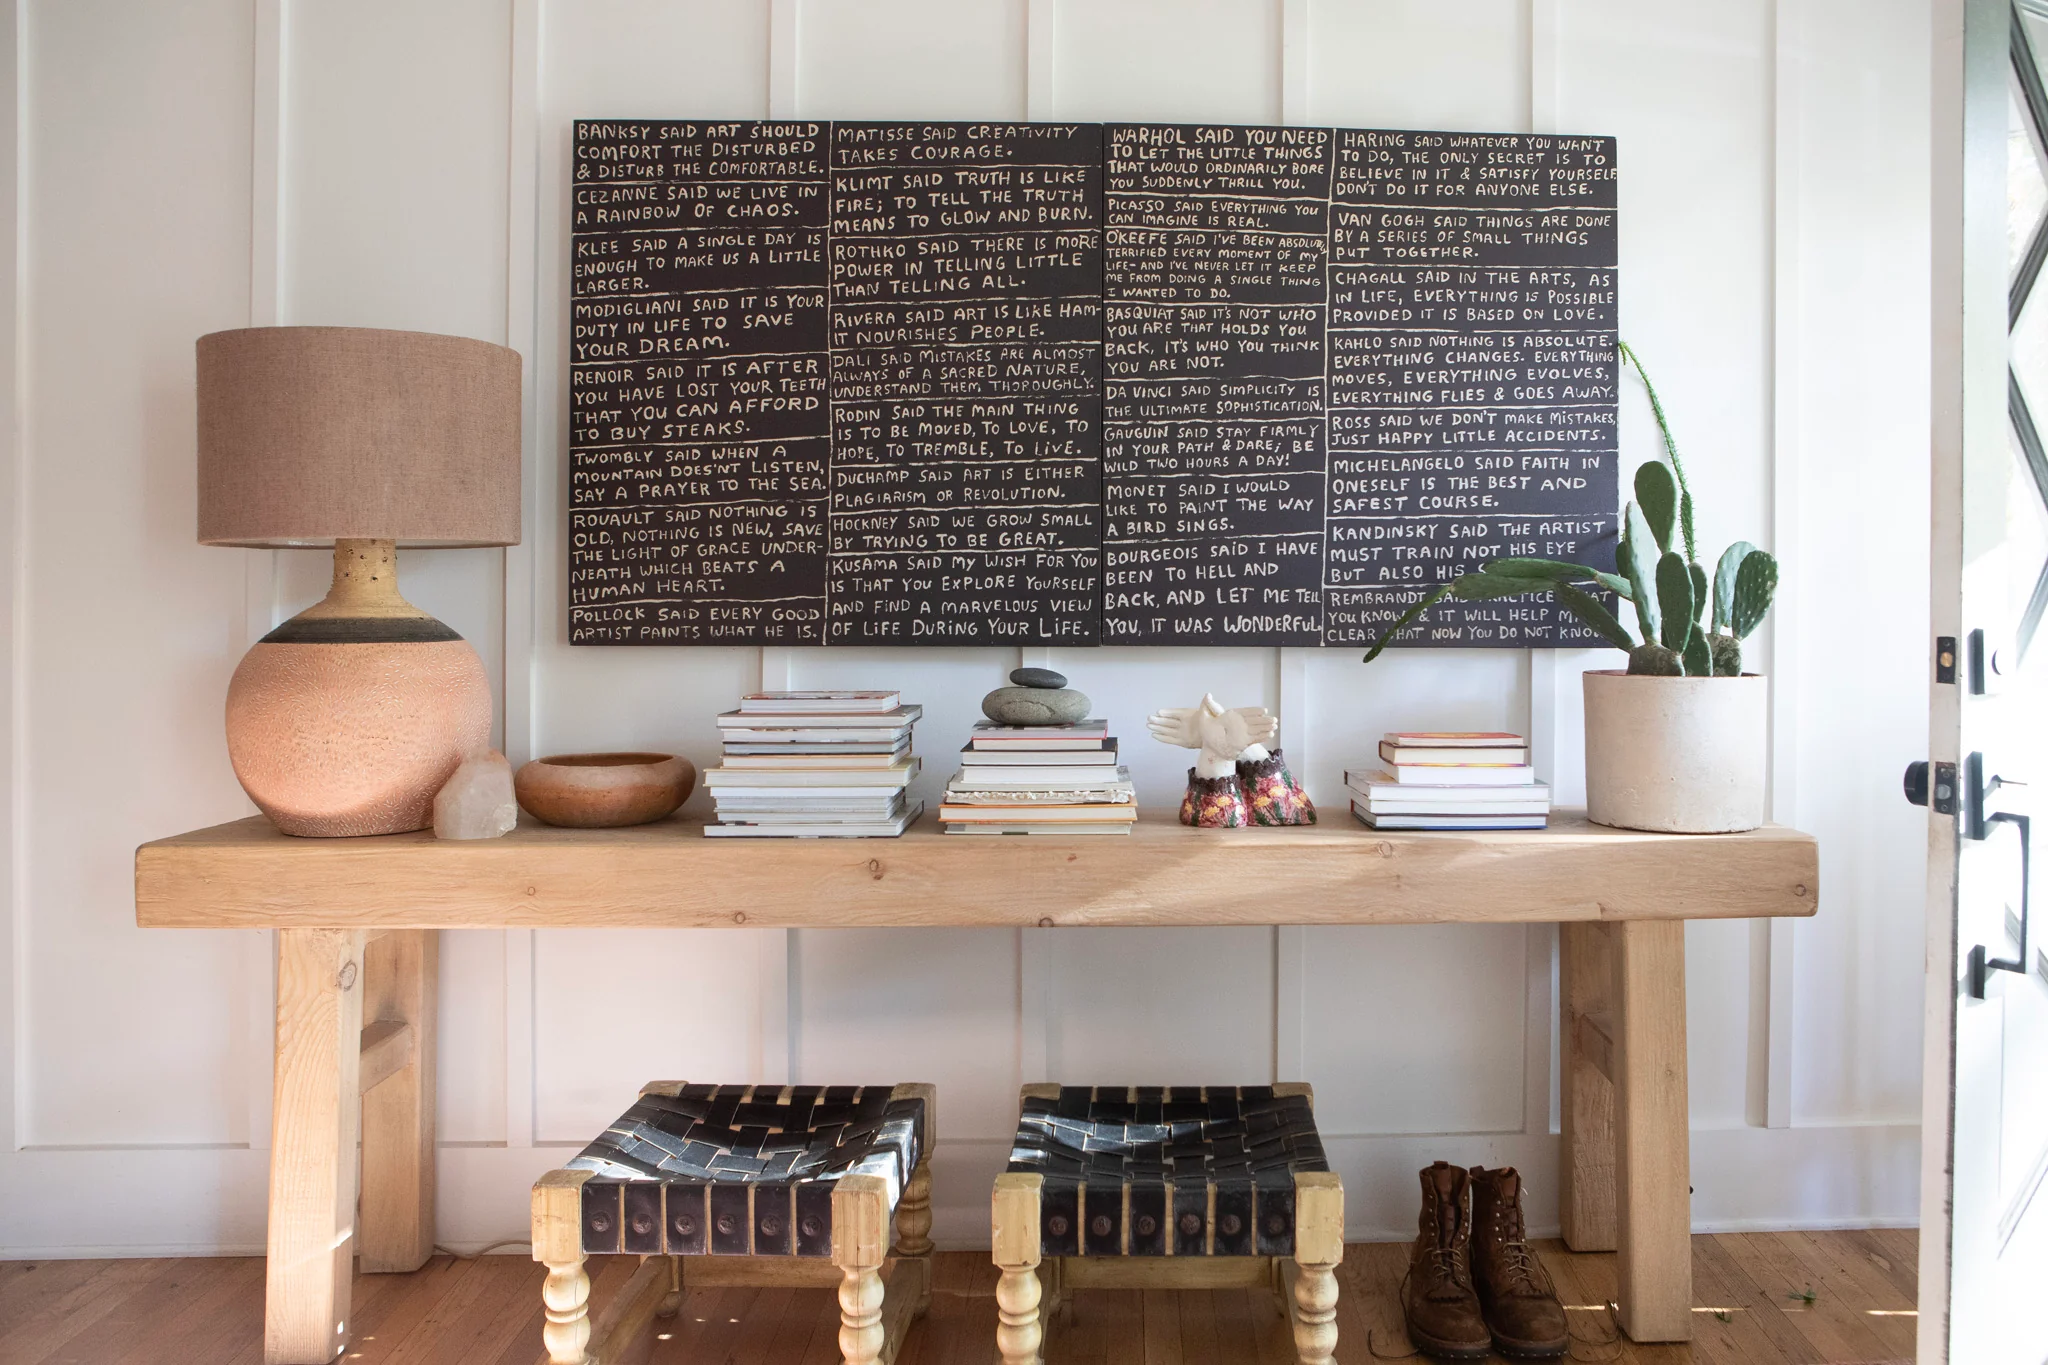 BANKSY SAID ART SHOULD
COMFORT THE DISTURBED
& DISTURB THE COMFORTABLE.
CEZANNE SAID WE LIVE IN
A RAINBOW OF CHAOS.
KLEE SAID A SINGLE DAY IS
ENOUGH TO MAKE US A LITTLE
LARGER.
MODIGLIANI SAID IT IS YOUR
DUTY IN LIFE TO SAVE
YOUR DREAM.
RENOIR SAID IT IS AFTER
YOU HAVE LOST YOUR TEETH
THAT YOU CAN AFFORD
TO BUY STEAKS.
TWOMBLY SAID WHEN A
MOUNTAIN DOES'NT LISTEN,
SAY A PRAYER TO THE SEA.
ROUAULT SAID NOTHING IS
OLD, NOTHING IS NEW, SAVE
THE LIGHT OF GRACE UNDER-
NEATH WHICH BEATS A
HUMAN HEART.
POLLOCK SAID EVERY GOOD
ARTIST PAINTS WHAT HE IS.
MATISSE SAID CREATIVITY
TAKES COURAGE.
KLIMT SAID TRUTH IS LIKE
FIRE; TO TELL THE TRUTH
MEANS TO GLOW AND BURN.
ROTHKO SAID THERE IS MORE
POWER IN TELLING LITTLE
THAN TELLING ALL.
RIVERA SAID ART IS LIKE HAM-
IT NOURISHES PEOPLE.
DALI SAID MISTAKES ARE ALMOST
ALWAYS OF A SACRED NATURE,
UNDERSTAND THEM THOROUGHLY.
RODIN SAID THE MAIN THING
IS TO BE MOVED, TO LOVE, TO
HOPE, TO TREMBLE, TO LIVE.
DUCHAMP SAID ART IS EITHER
PLAGIARISM OR REVOLUTION.
HOCKNEY SAID WE GROW SMALL
BY TRYING TO BE GREAT.
KUSAMA SAID MY WISH FOR YOU
IS THAT YOU EXPLORE YOURSELF
AND FIND A MARVELOUS VIEW
OF LIFE DURING YOUR LIFE.
WARHOL SAID YOU NEED
TO LET THE LITTLE THINGS
THAT WOULD ORDINARILY BORE
YOU SUDDENLY THRILL YOU.
PICASSO SAID EVERYTHING YOU
CAN IMAGINE IS REAL.
O'KEEFE SAID I'VE BEEN ABSOLUTELY
TERRIFIED EVERY MOMENT OF MY
LIFE- AND I'VE NEVER LET IT KEEP
ME FROM DOING A SINGLE THING
I WANTED TO DO.
BASQUIAT SAID IT'S NOT WHO
YOU ARE THAT HOLDS YOU
BACK, IT'S WHO YOU THINK
YOU ARE NOT.
DA VINCI SAID SIMPLICITY IS
THE ULTIMATE SOPHISTICATION.
GAUGUIN SAID STAY FIRMLY
IN YOUR PATH & DARE; BE
WILD TWO HOURS A DAY!
MONET SAID I WOULD
LIKE TO PAINT THE WAY
A BIRD SINGS.
BOURGEOIS SAID I HAVE
BEEN TO HELL AND
BACK, AND LET ME TELL
YOU, IT WAS WONDERFUL.
HARING SAID WHATEVER YOU WANT
TO DO, THE ONLY SECRET IS TO
BELIEVE IN IT & SATISFY YOURSELF.
DON'T DO IT FOR ANYONE ELSE.
VAN GOGH SAID THINGS ARE DONE
BY A SERIES OF SMALL THINGS
PUT TOGETHER.
CHAGALL SAID IN THE ARTS, AS
IN LIFE, EVERYTHING IS POSSIBLE
PROVIDED IT IS BASED ON LOVE.
KAHLO SAID NOTHING IS ABSOLUTE.
EVERYTHING CHANGES. EVERYTHING
MOVES, EVERYTHING EVOLVES,
EVERYTHING FLIES & GOES AWAY.
ROSS SAID WE DON'T MAKE MISTAKES,
JUST HAPPY LITTLE ACCIDENTS.
MICHELANGELO SAID FAITH IN
ONESELF IS THE BEST AND
SAFEST COURSE.
KANDINSKY SAID THE ARTIST
MUST TRAIN NOT HIS EYE
BUT ALSO HIS
REMBRANDT SAID PRACTICE
YOU KNOW & IT WILL HELP
CLEAR WHAT NOW YOU DO NOT KNOW